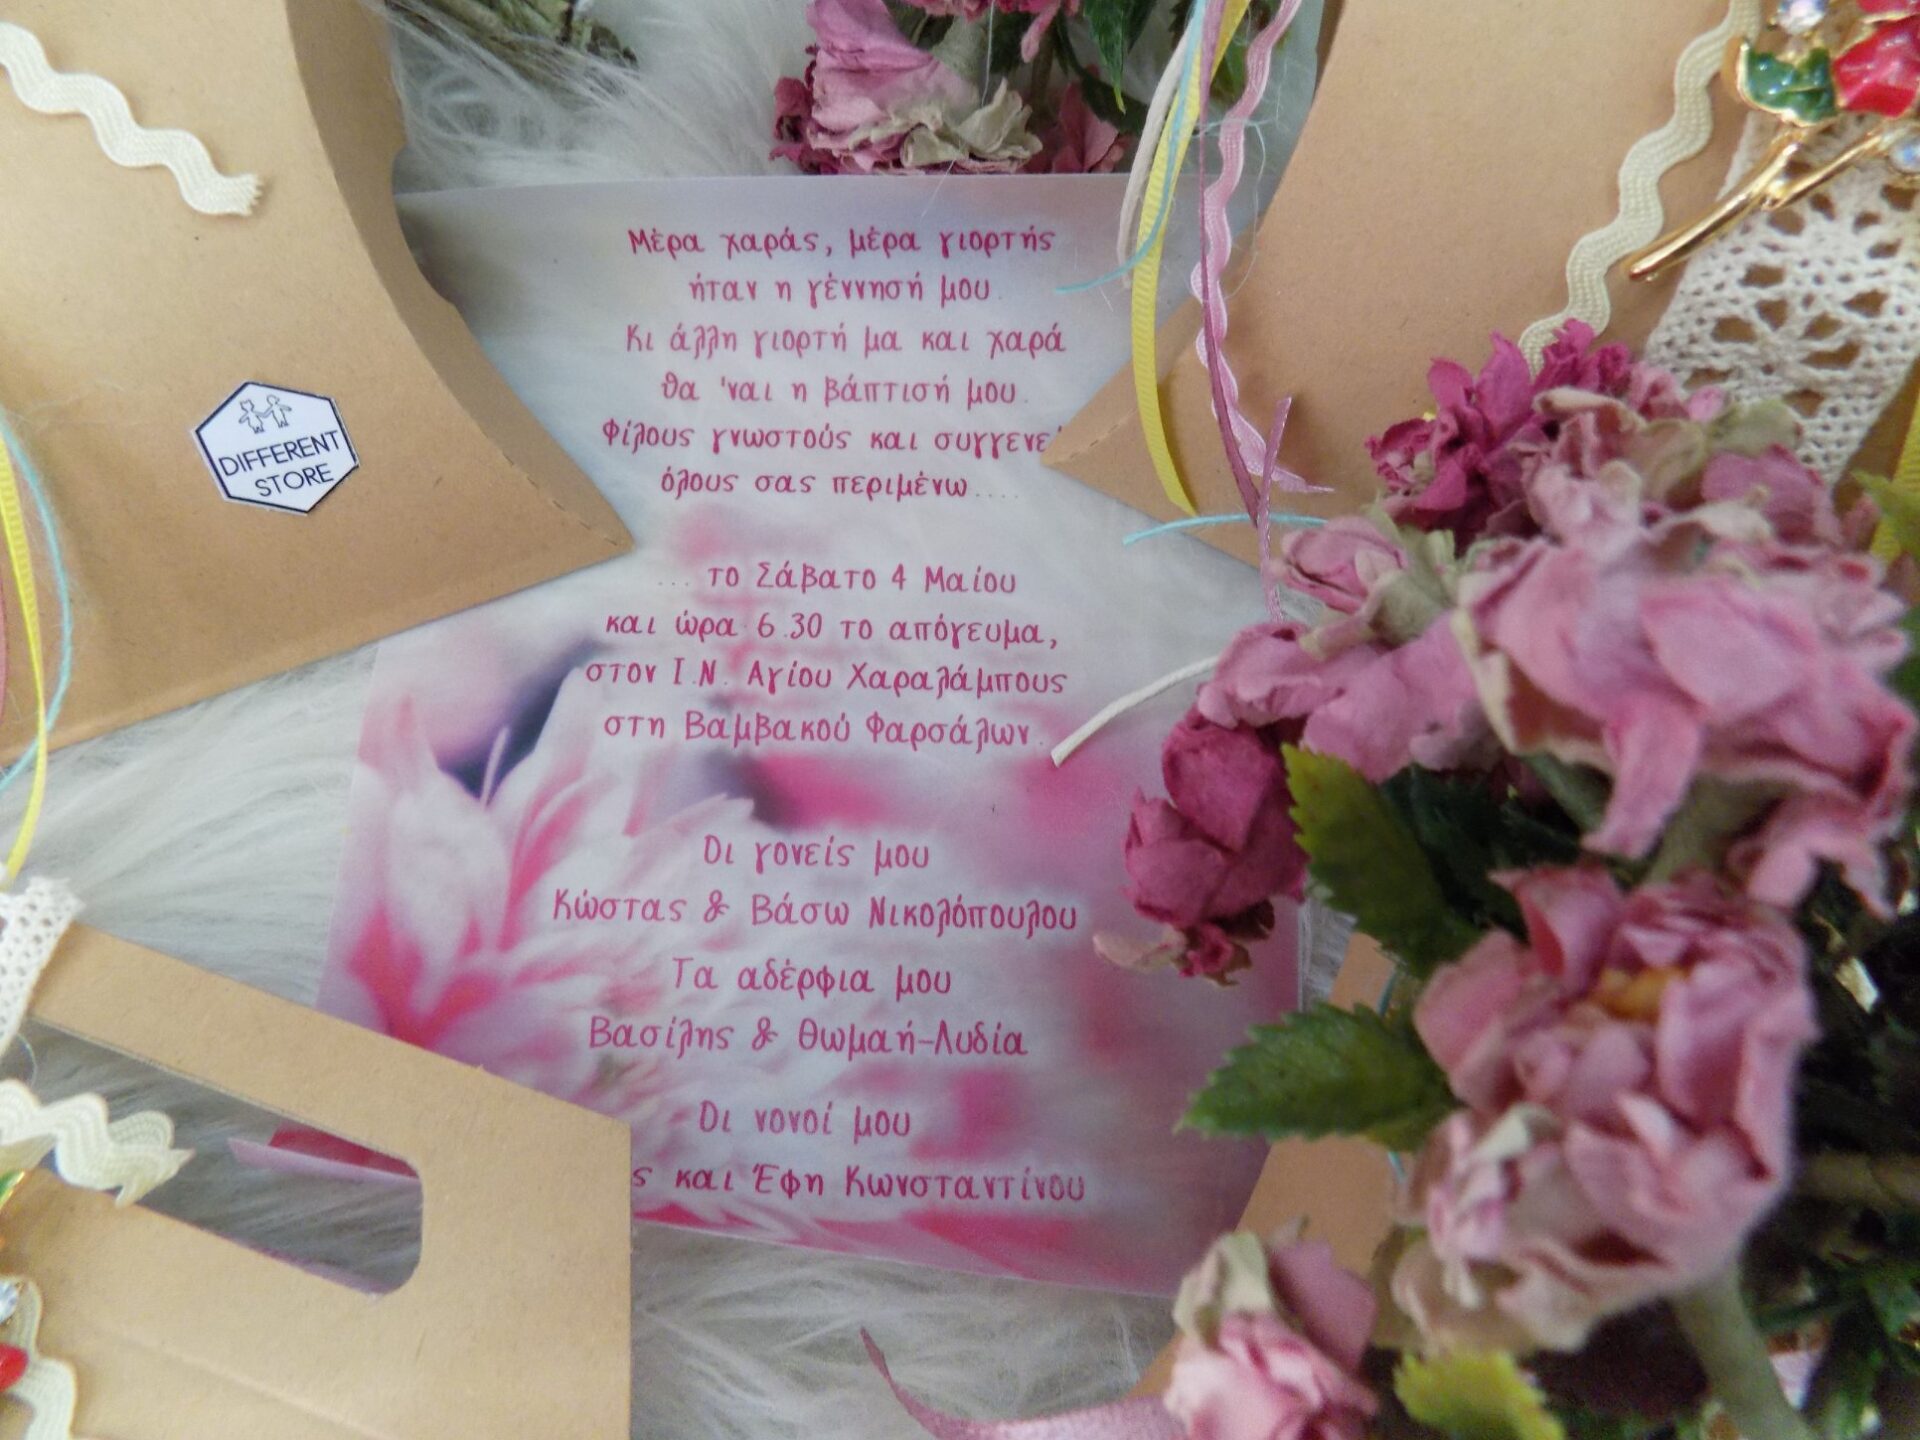 Μέρα χαράς, μέρα γιορτής
ήταν η γέννησή μου.
Κι άλλη γιορτή μα και χαρά
θα 'ναι η βάπτισή μου.
Φίλους γνωστούς και
όλους σας περιμένω....
... το Σάββατο 4 Μαίου
και ώρα 6.30 το απόγευμα,
στον Ι.Ν. Αγίου Χαραλάμπους
στη Βαμβακού Φαρσάλων.
Οι γονείς μου
Κώστας & Βάσω Νικολόπουλου
Τα αδέρφια μου
Βασίλης & Θωμαή-Λυδία
Οι νονοί μου
και Έφη Κωνσταντίνου
DIFFERENT
STORE